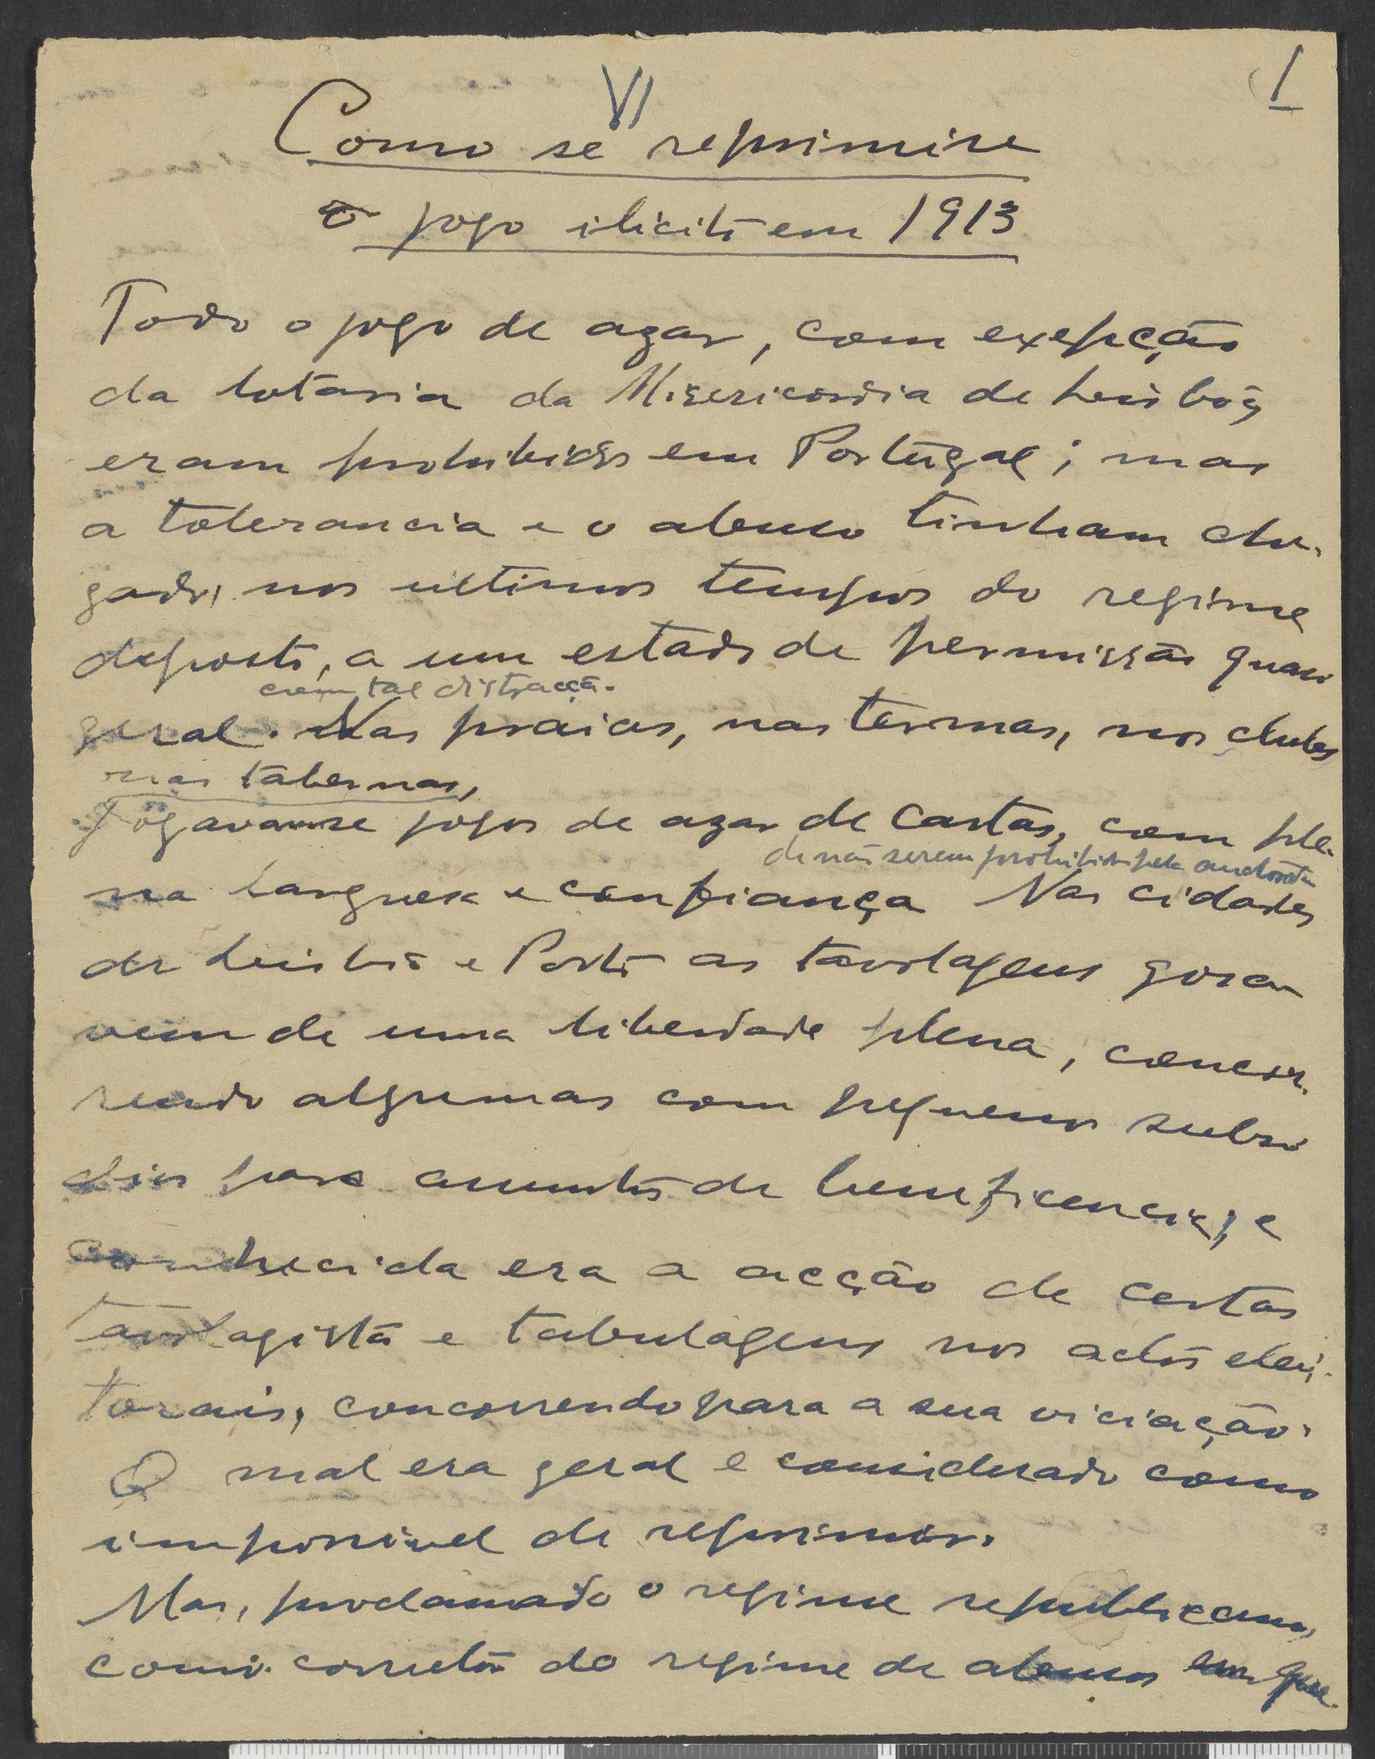 1
VI
Como se reprimire
o jogo ilicito em 1913
Todo o jogo de azar, com exepção
da lotaria da Misericordia de Lisboa
eram prohibidos em Portugal; mas
a tolerancia e o abuso tinham che-
gado, nos ultimos tempos do regime
deposto, a um estado de permissão quasi
com tal distracção.
geral. Nas praias, nas termas, nos clubes
nas tabernas,
jogavam-se jogos de azar de cartas, com ple-
de não serem prohibidos pela auctoridade
na largueza e confiança Nas cidades
de Lisboa e Porto as tavolagens gosa-
vam de uma liberdade plena, concor-
rendo algumas com pequenos subsi
dios para assuntos de beneficencia; e
conhecida era a acção de certas
tavolagista e tabulagens nos actos elei-
torais, concorrendo para a sua viciação.
O mal era geral e considerado como
impossivel de reprimir.
Mas, proclamado o regime republicano,
como corretor do regime de abusos em que